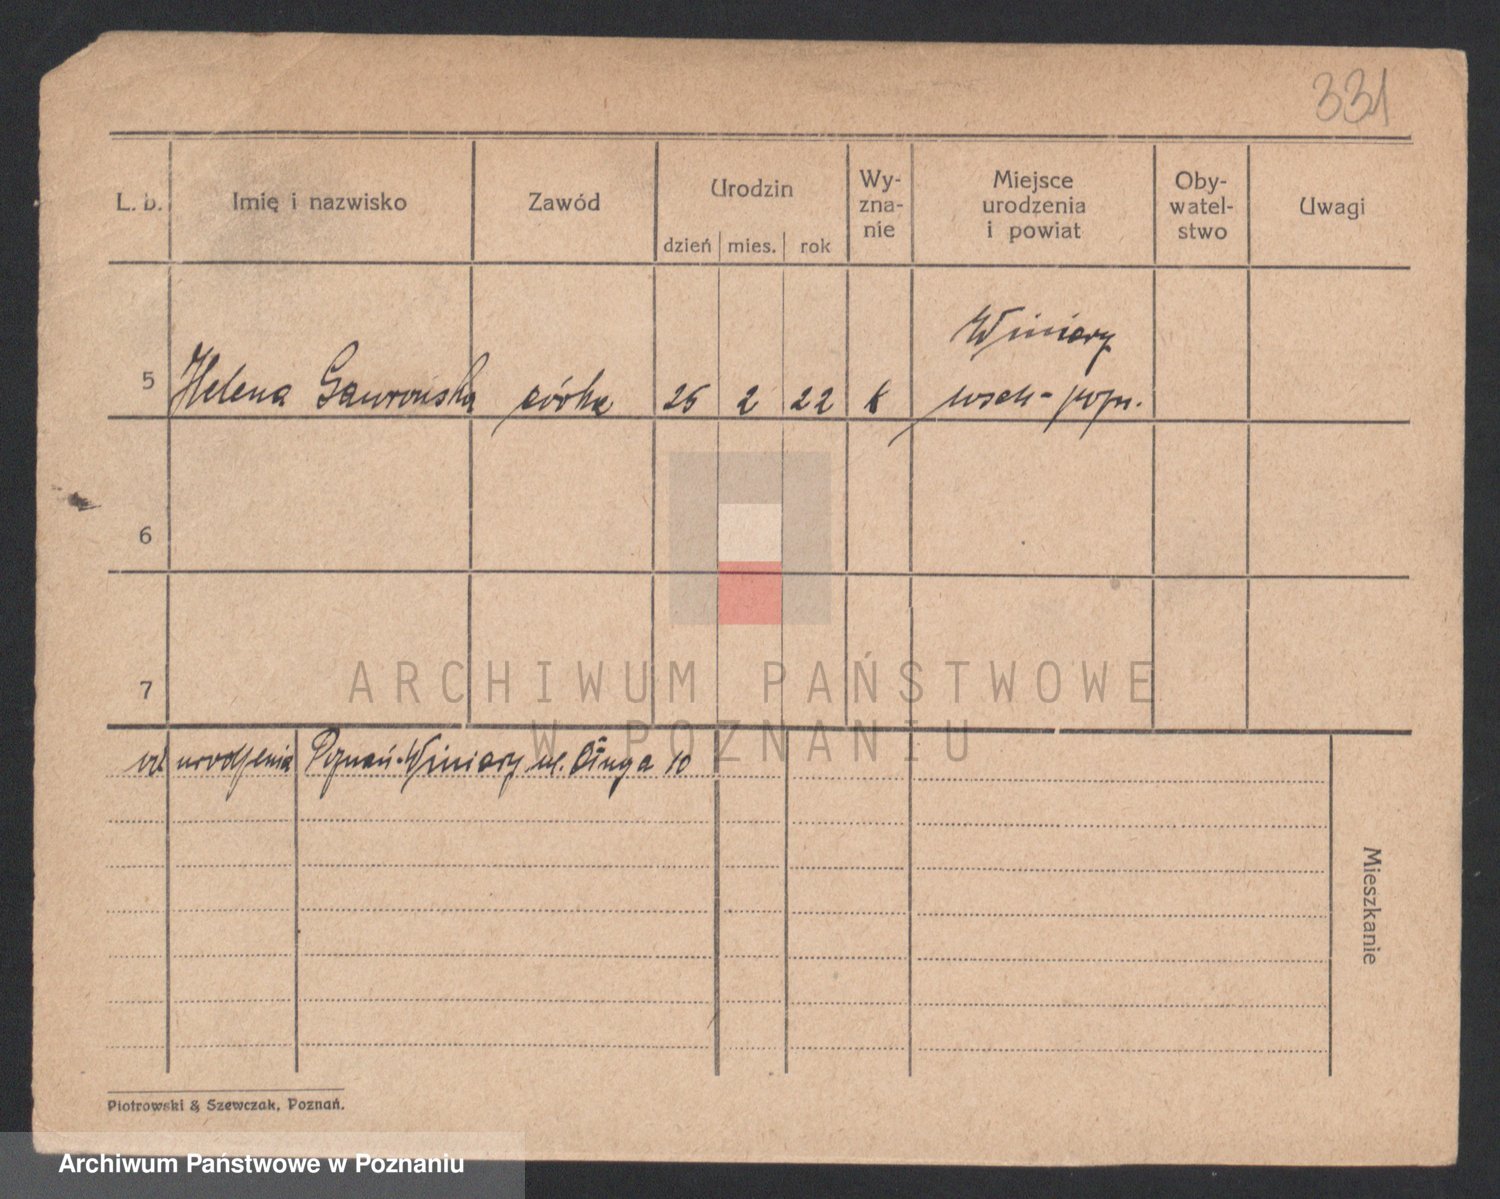 331
L. b. Imię i nazwisko Zawód Urodzin Wy- Miejsce Oby- Uwagi
zna- urodzenia watel-
dzień mies. rok nie i powiat stwo
Winiary
5 Helena Gawrońska córka 25 2 22 k wsch-pozn.
6
7
ARCHIWUM PAŃSTWOWE
W POZNANIU
od urodzenia Poznań-Winiary ul. Długa 10
Mieszkanie
Piotrowski & Szewczak, Poznań.
Archiwum Państwowe w Poznaniu